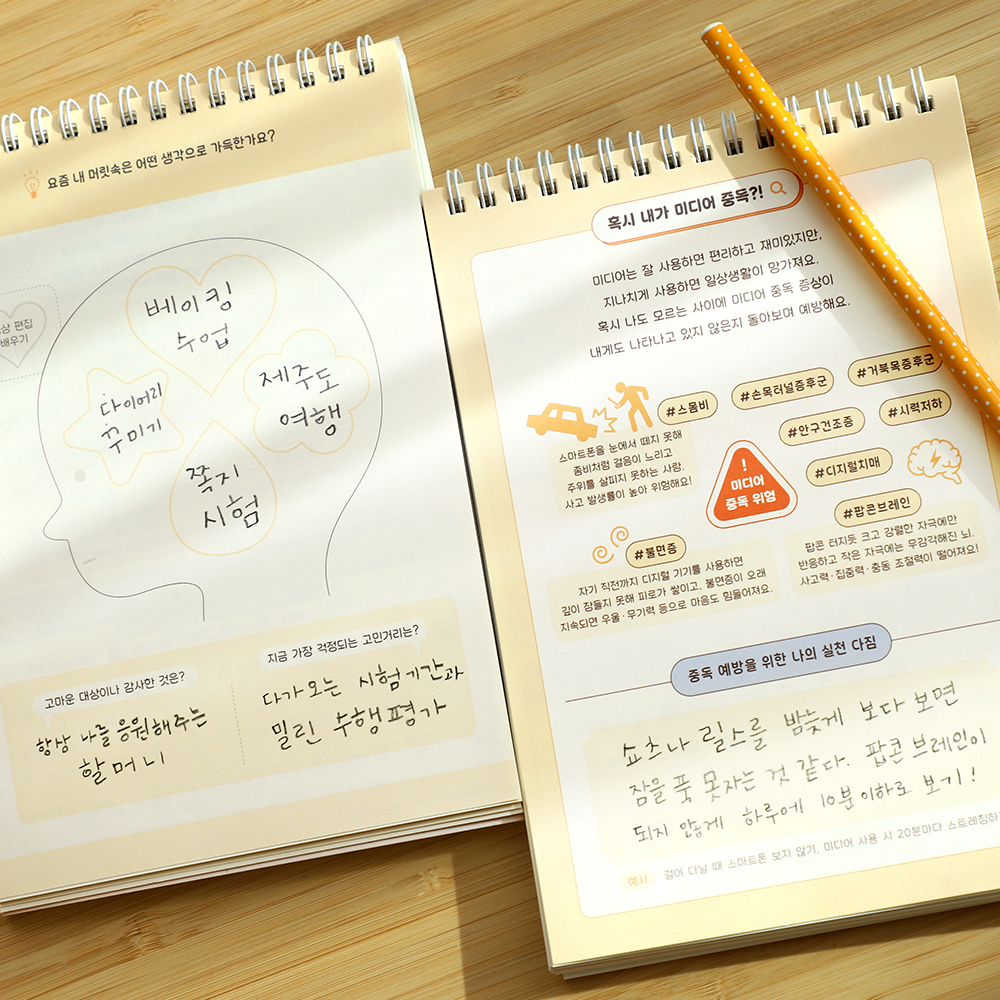 요즘 내 머릿속은 어떤 생각으로 가득한가요?
편집
배우기
베이킹
수업
다이어리
꾸미기
제주도
여행
쪽지
시험
고마운 대상이나 감사한 것은?
항상 나를 응원해주는
할머니
지금 가장 걱정되는 고민거리는?
다가오는 시험기간과
밀린 수행평가
혹시 내가 미디어 중독?!
미디어는 잘 사용하면 편리하고 재미있지만,
지나치게 사용하면 일상생활이 망가져요.
혹시 나도 모르는 사이에 미디어 중독 증상이
내게도 나타나고 있지 않은지 돌아보며 예방해요.
#스몸비
#손목터널증후군
#거북목증후군
#안구건조증
#시력저하
#디지털치매
#팝콘브레인
스마트폰을 눈에서 떼지 못해
좀비처럼 걸음이 느리고
주위를 살피지 못하는 사람.
사고 발생률이 높아 위험해요!
!
미디어
중독 위험
팝콘 터지듯 크고 강렬한 자극에만
반응하고 작은 자극에는 무감각해진 뇌.
사고력·집중력·충동 조절력이 떨어져요!
#불면증
자기 직전까지 디지털 기기를 사용하면
깊이 잠들지 못해 피로가 쌓이고, 불면증이 오래
지속되면 우울·무기력 등으로 마음도 힘들어져요.
중독 예방을 위한 나의 실천 다짐
쇼츠나 릴스를 밤늦게 보다 보면
잠을 푹 못자는 것 같다. 팝콘 브레인이
되지 않게 하루에 10분 이하로 보기!
예시 걸어 다닐 때 스마트폰 보지 않기, 미디어 사용 시 20분마다 스트레칭하